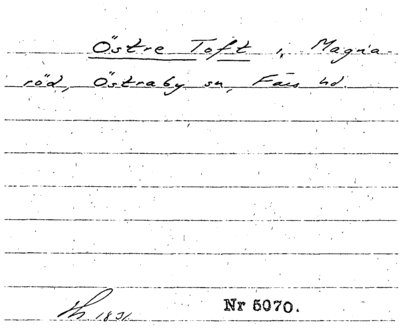 Östre Toft i Magna-
röd, Östraby sn, Färs hd.
Lh 1831.
Nr 5070.